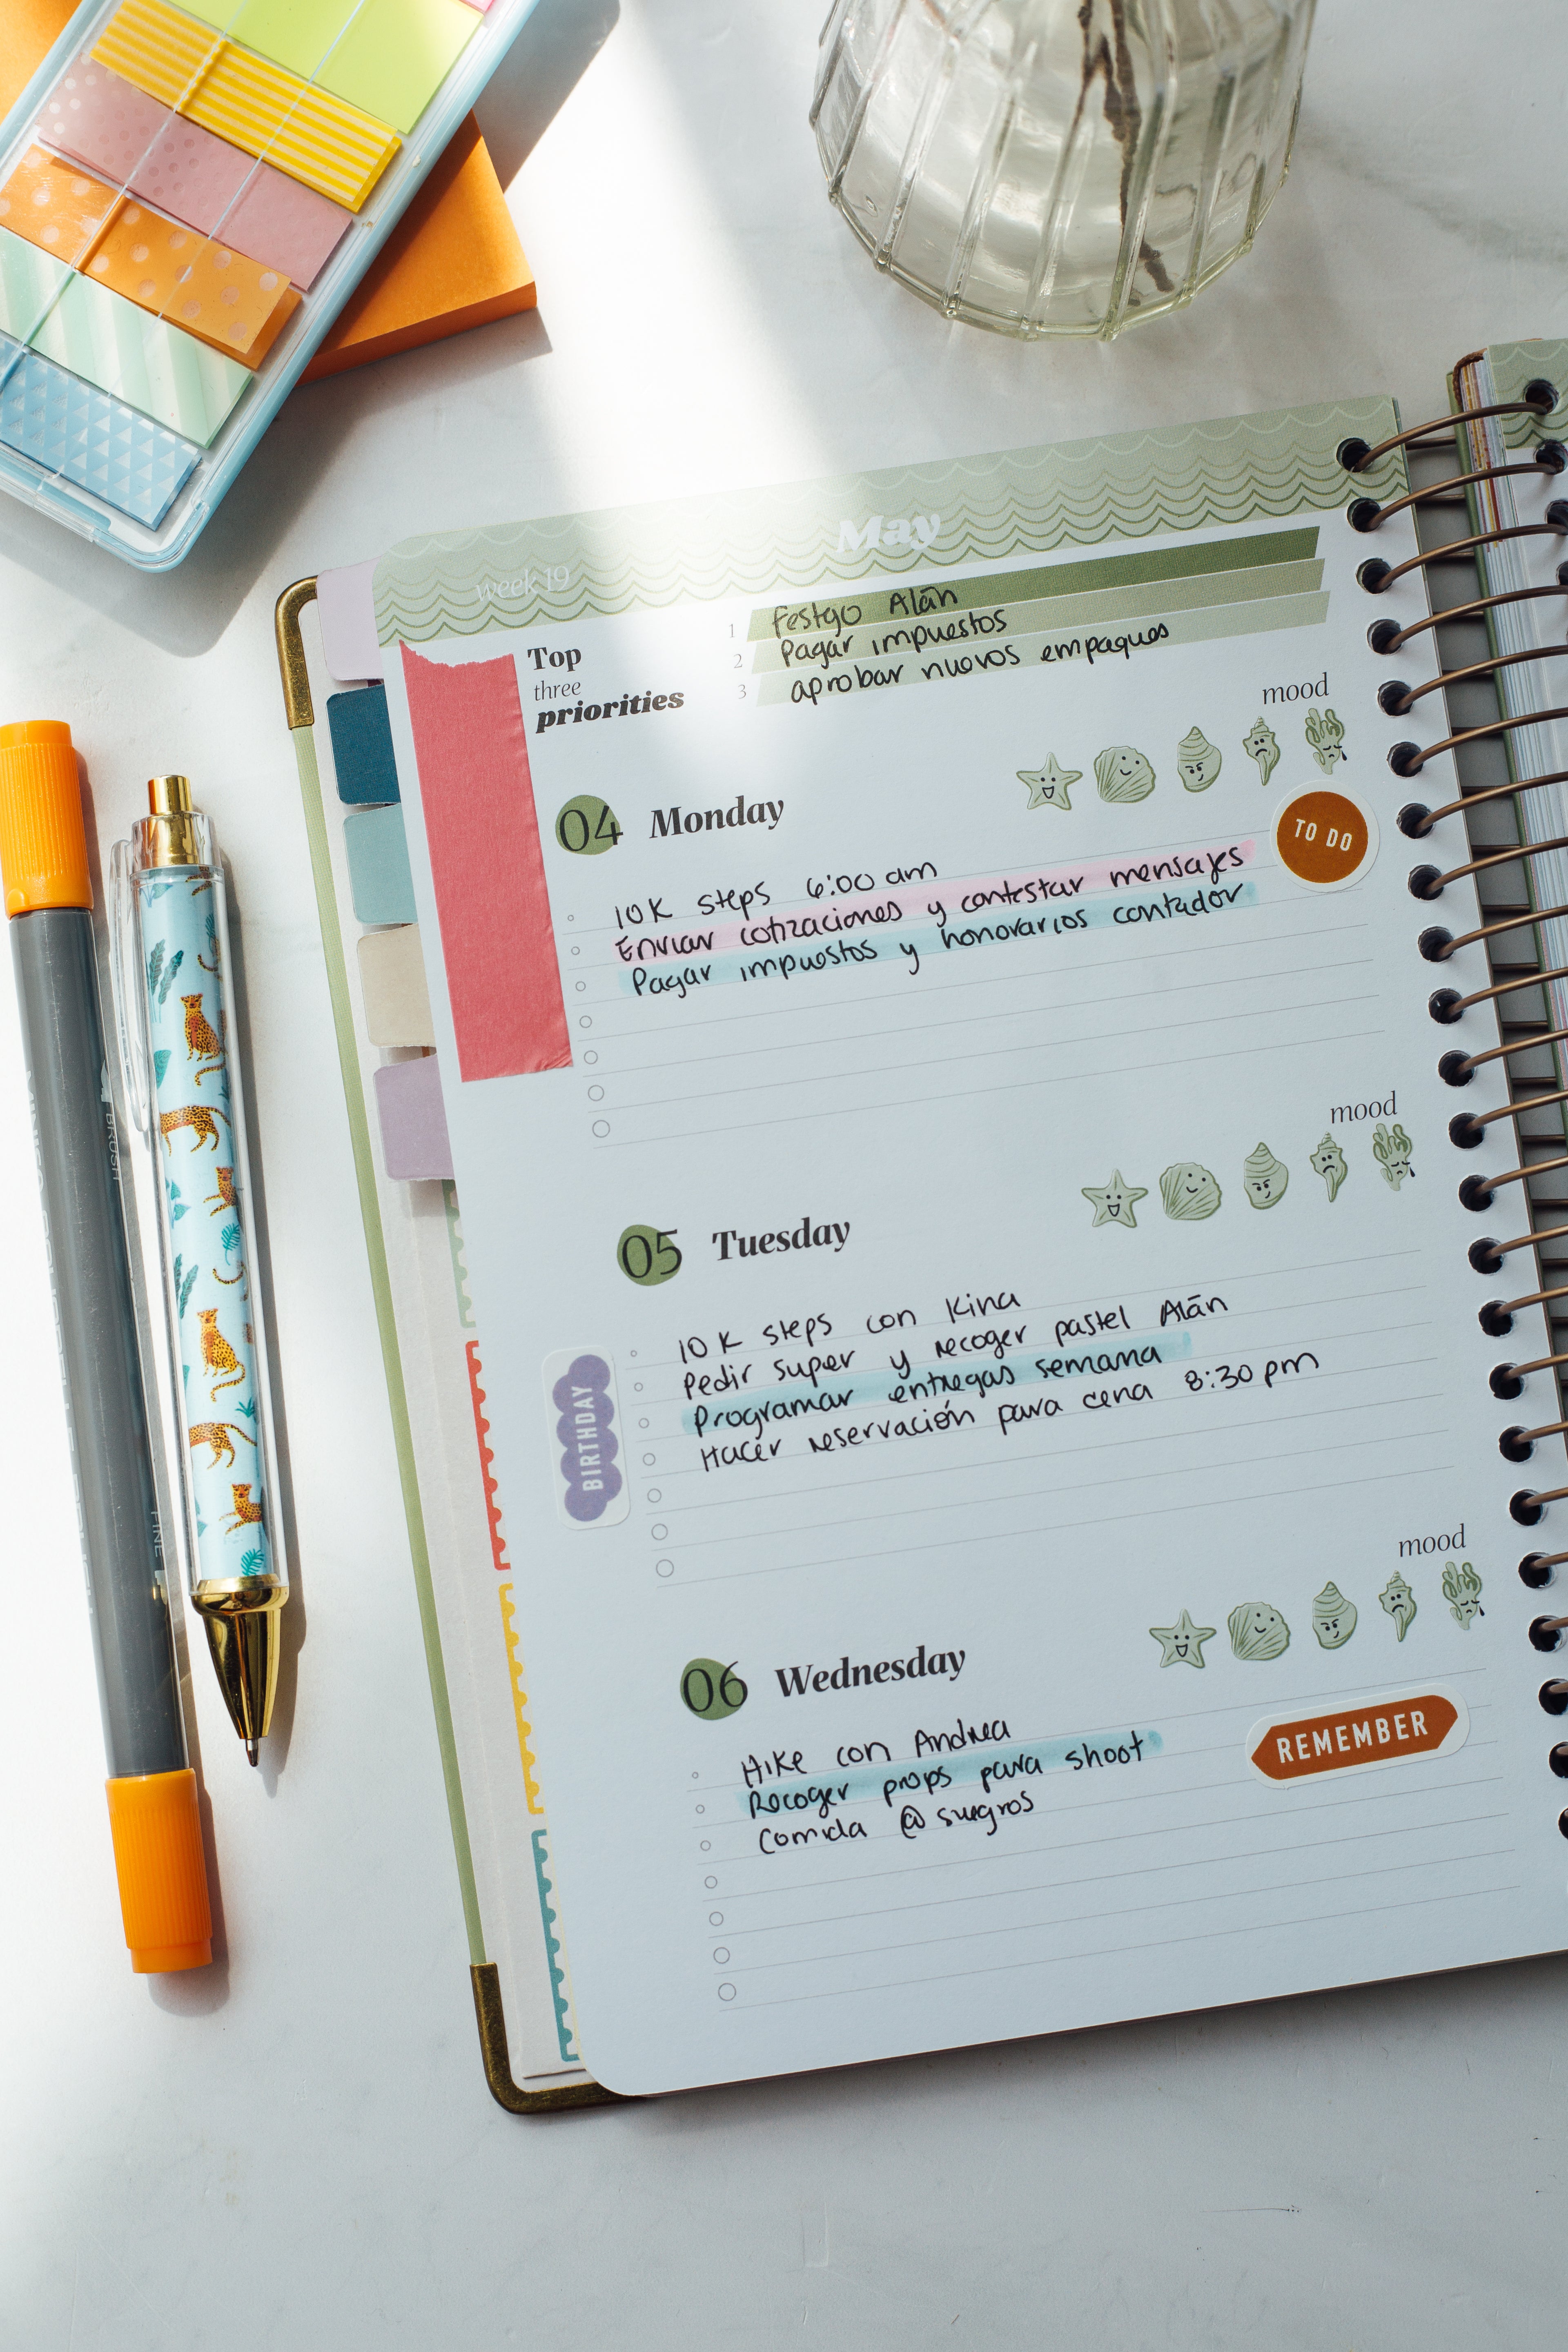 May
week 19
Top
three
priorities
1 Festgo Alán
2 Pagar impuestos
3 aprobar nuevos empaques
mood
04 Monday
TO DO
10K steps 6:00 am
Enviar cotizaciones y contestar mensajes
Pagar impuestos y honorarios contador
mood
05 Tuesday
BIRTHDAY
10K steps con Kina
Pedir super y recoger pastel Alán
Programar entregas semana
Hacer reservación para cena 8:30 pm
mood
06 Wednesday
REMEMBER
Hike con Andrea
Recoger props para shoot
Comida @ suegros
BRUSH
FINE